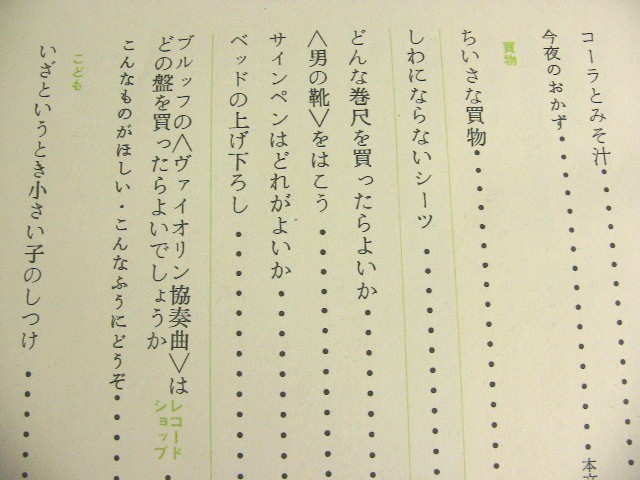 コーラとみそ汁・・・・・・・・・・
今夜のおかず・・・・・・・・・・本文
買物
ちいさな買物・・・・・・・・・・
しわにならないシーツ・・・・・・・・
どんな巻尺を買ったらよいか・・・・・・
〈男の靴〉をはこう・・・・・・・・
サインペンはどれがよいか・・・・・・
ベッドの上げ下ろし・・・・・・・・
ブルッフの〈ヴァイオリン協奏曲〉は
どの盤を買ったらよいでしょうか
レコード
ショップ
こんなものがほしい・こんなふうにどうぞ・・・・
こども
いざというとき小さい子のしつけ・・・・